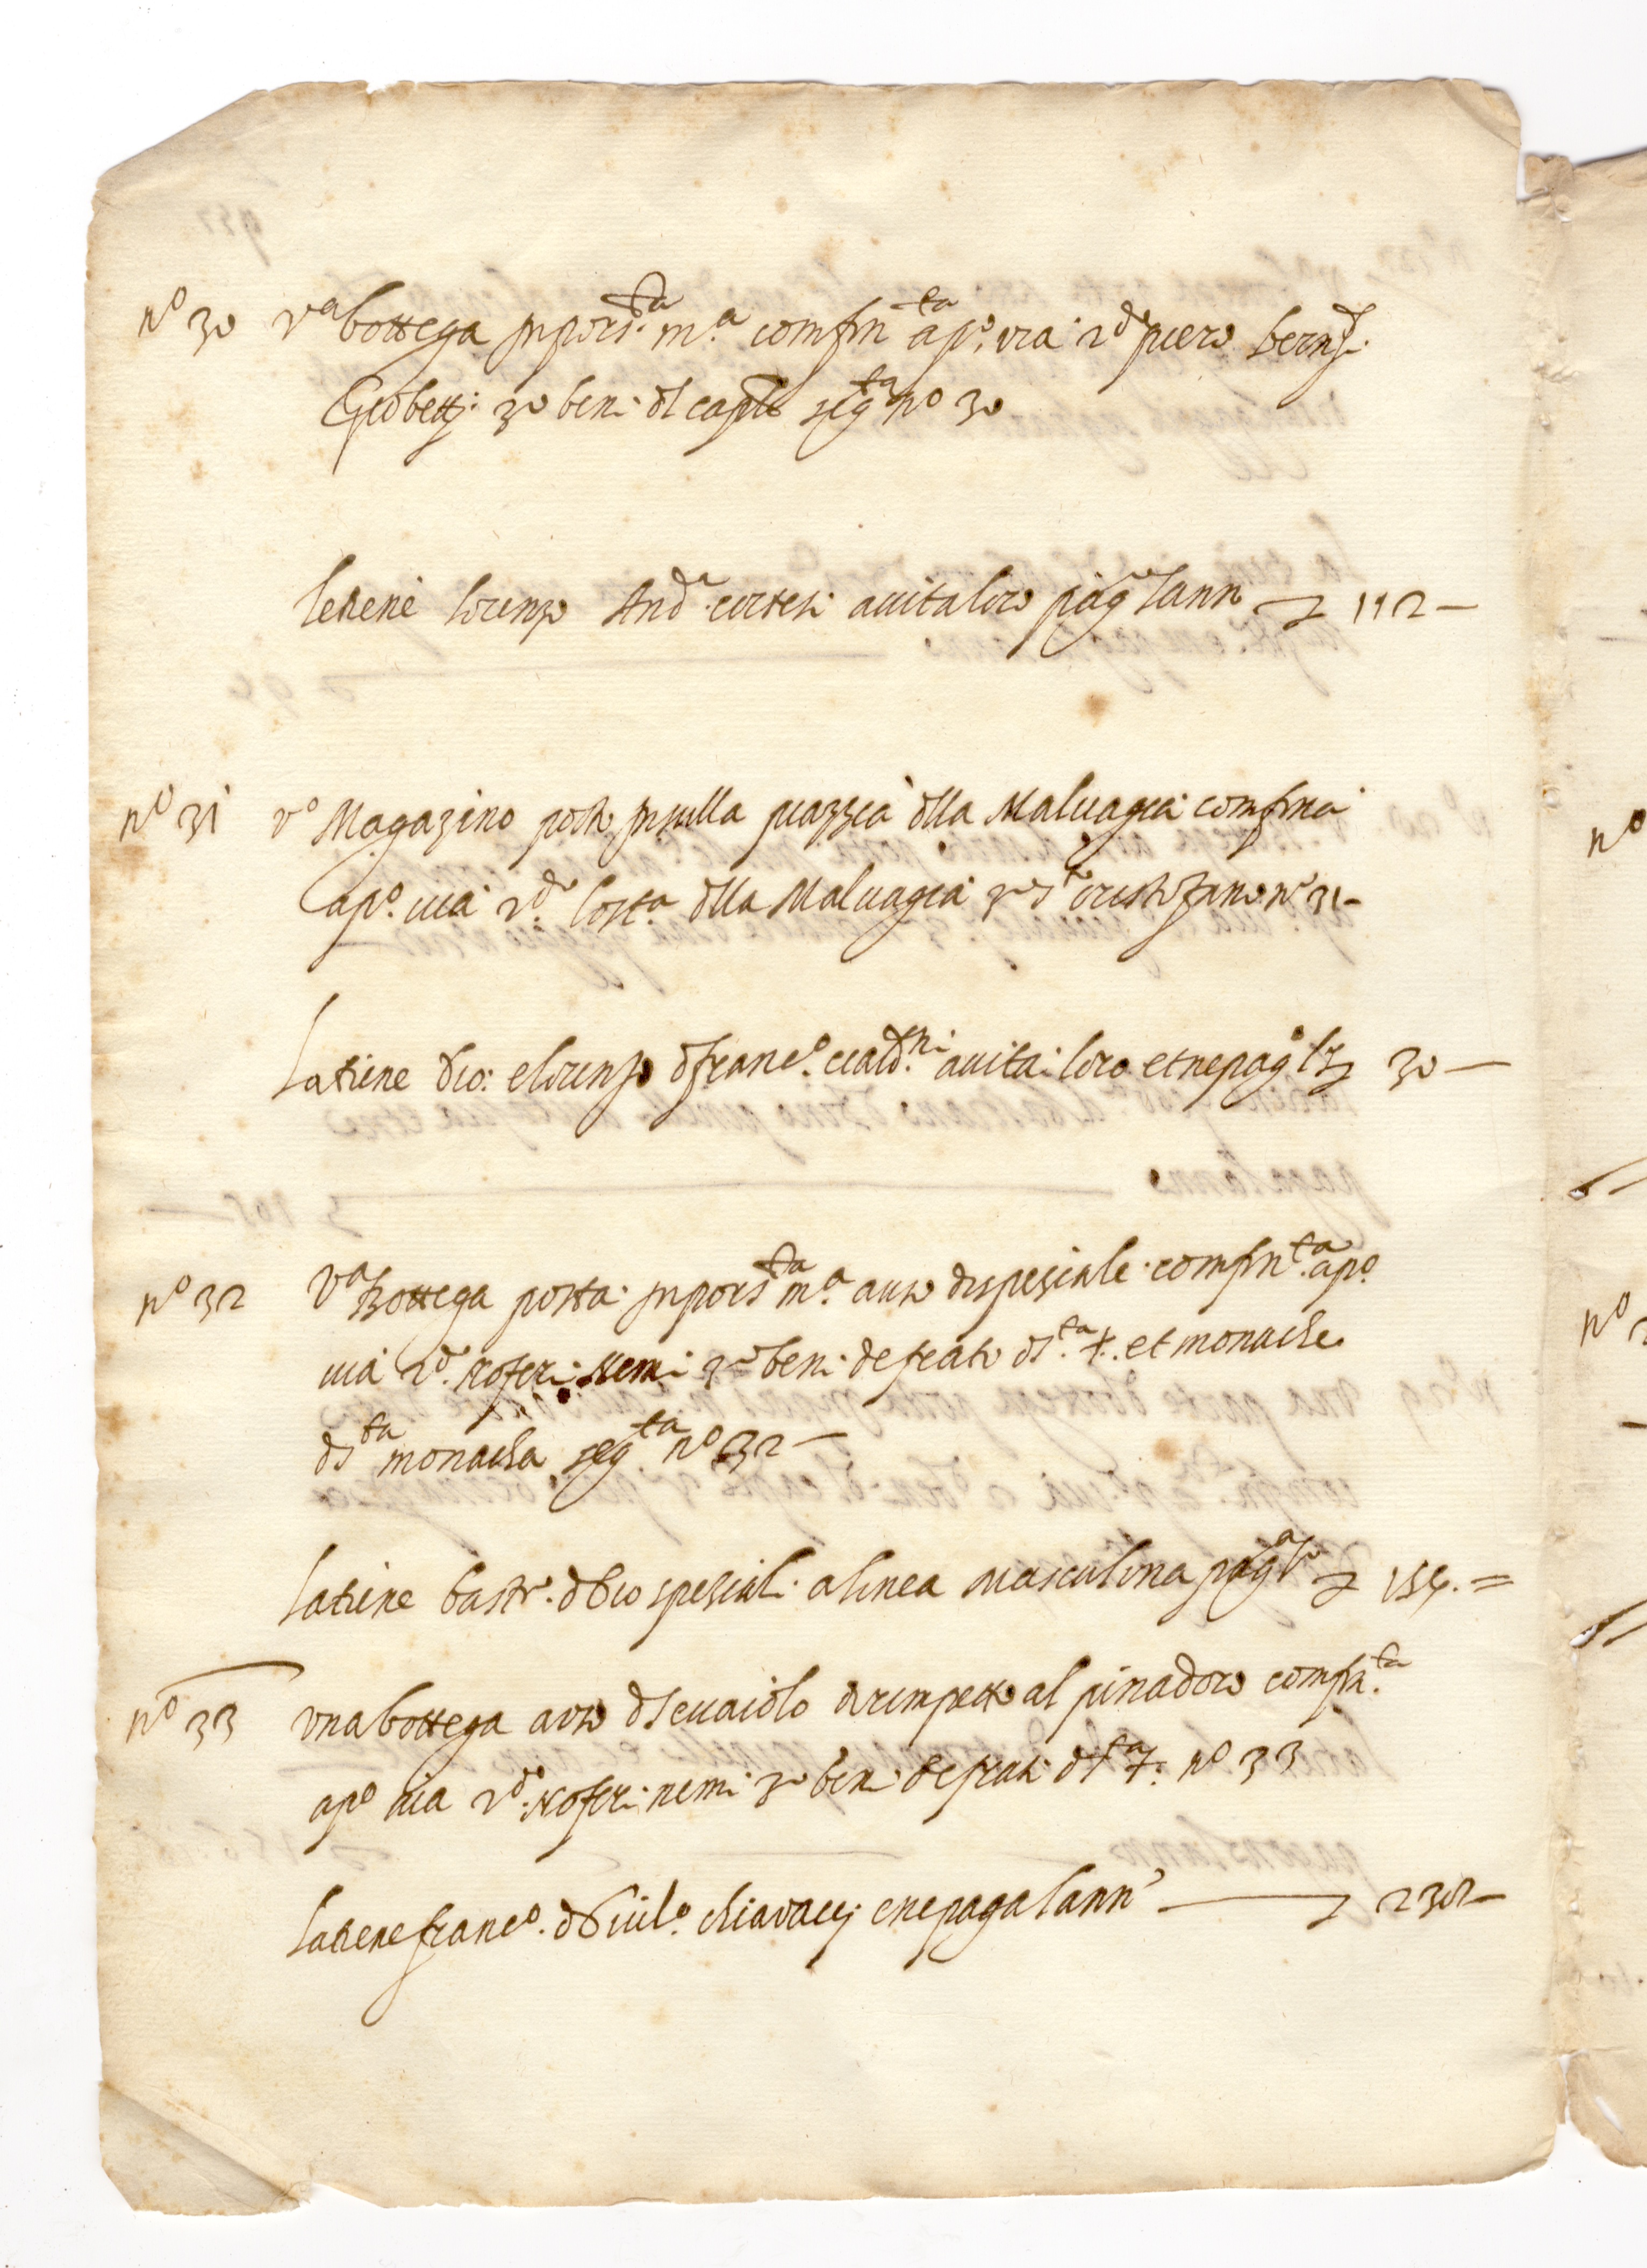 n° 30 Va bottega in pors.ta m.a confin.ta a p.o via 2.do piero bern.di
Giobetti 3o beni dl cap.lo seg.ta n° 30
letiene lorenzo And.a cortesi avita loro pag.o lann 112 —
n° 31 v° Magazino posto in sulla piazza dlla Malvagia confina
a p.o via 2.do lost.a dlla Malvagia 3o s.to cristofano n° 31 —
latiene dio: e lorenzo d franc.o ciald.ni avita: loro et ne pag.o 30 —
n° 32 Va Bottega posta in pors.ta m.a a uso di speziale confin.ta a p.o
via 2.do noferi Nemi 3o beni de frati d s.ta +. et monache
d s.ta monacha seg.ta n° 32 —
latiene bast.o d Gio speziali a linea mascalina pag.a 154. =
n° 33 una bottega a uso d senaiolo dirimpetto al pinadoro confin.ta
a p.o via 2.do Noferi nemi 3o beni de frati d s.ta +. n° 33
latiene franc.o d Giul.o chiavacci e ne paga lann° 232 —